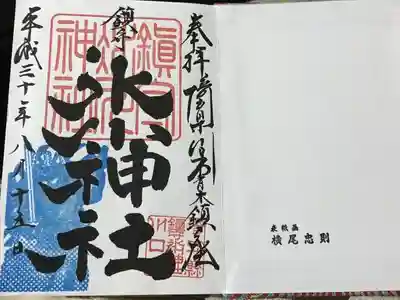 奉拝
埼玉県川口市青木鎮座
鎮守
氷川神社
平成三十年八月十五日
鎮守氷川神社
表紙画
横尾忠則